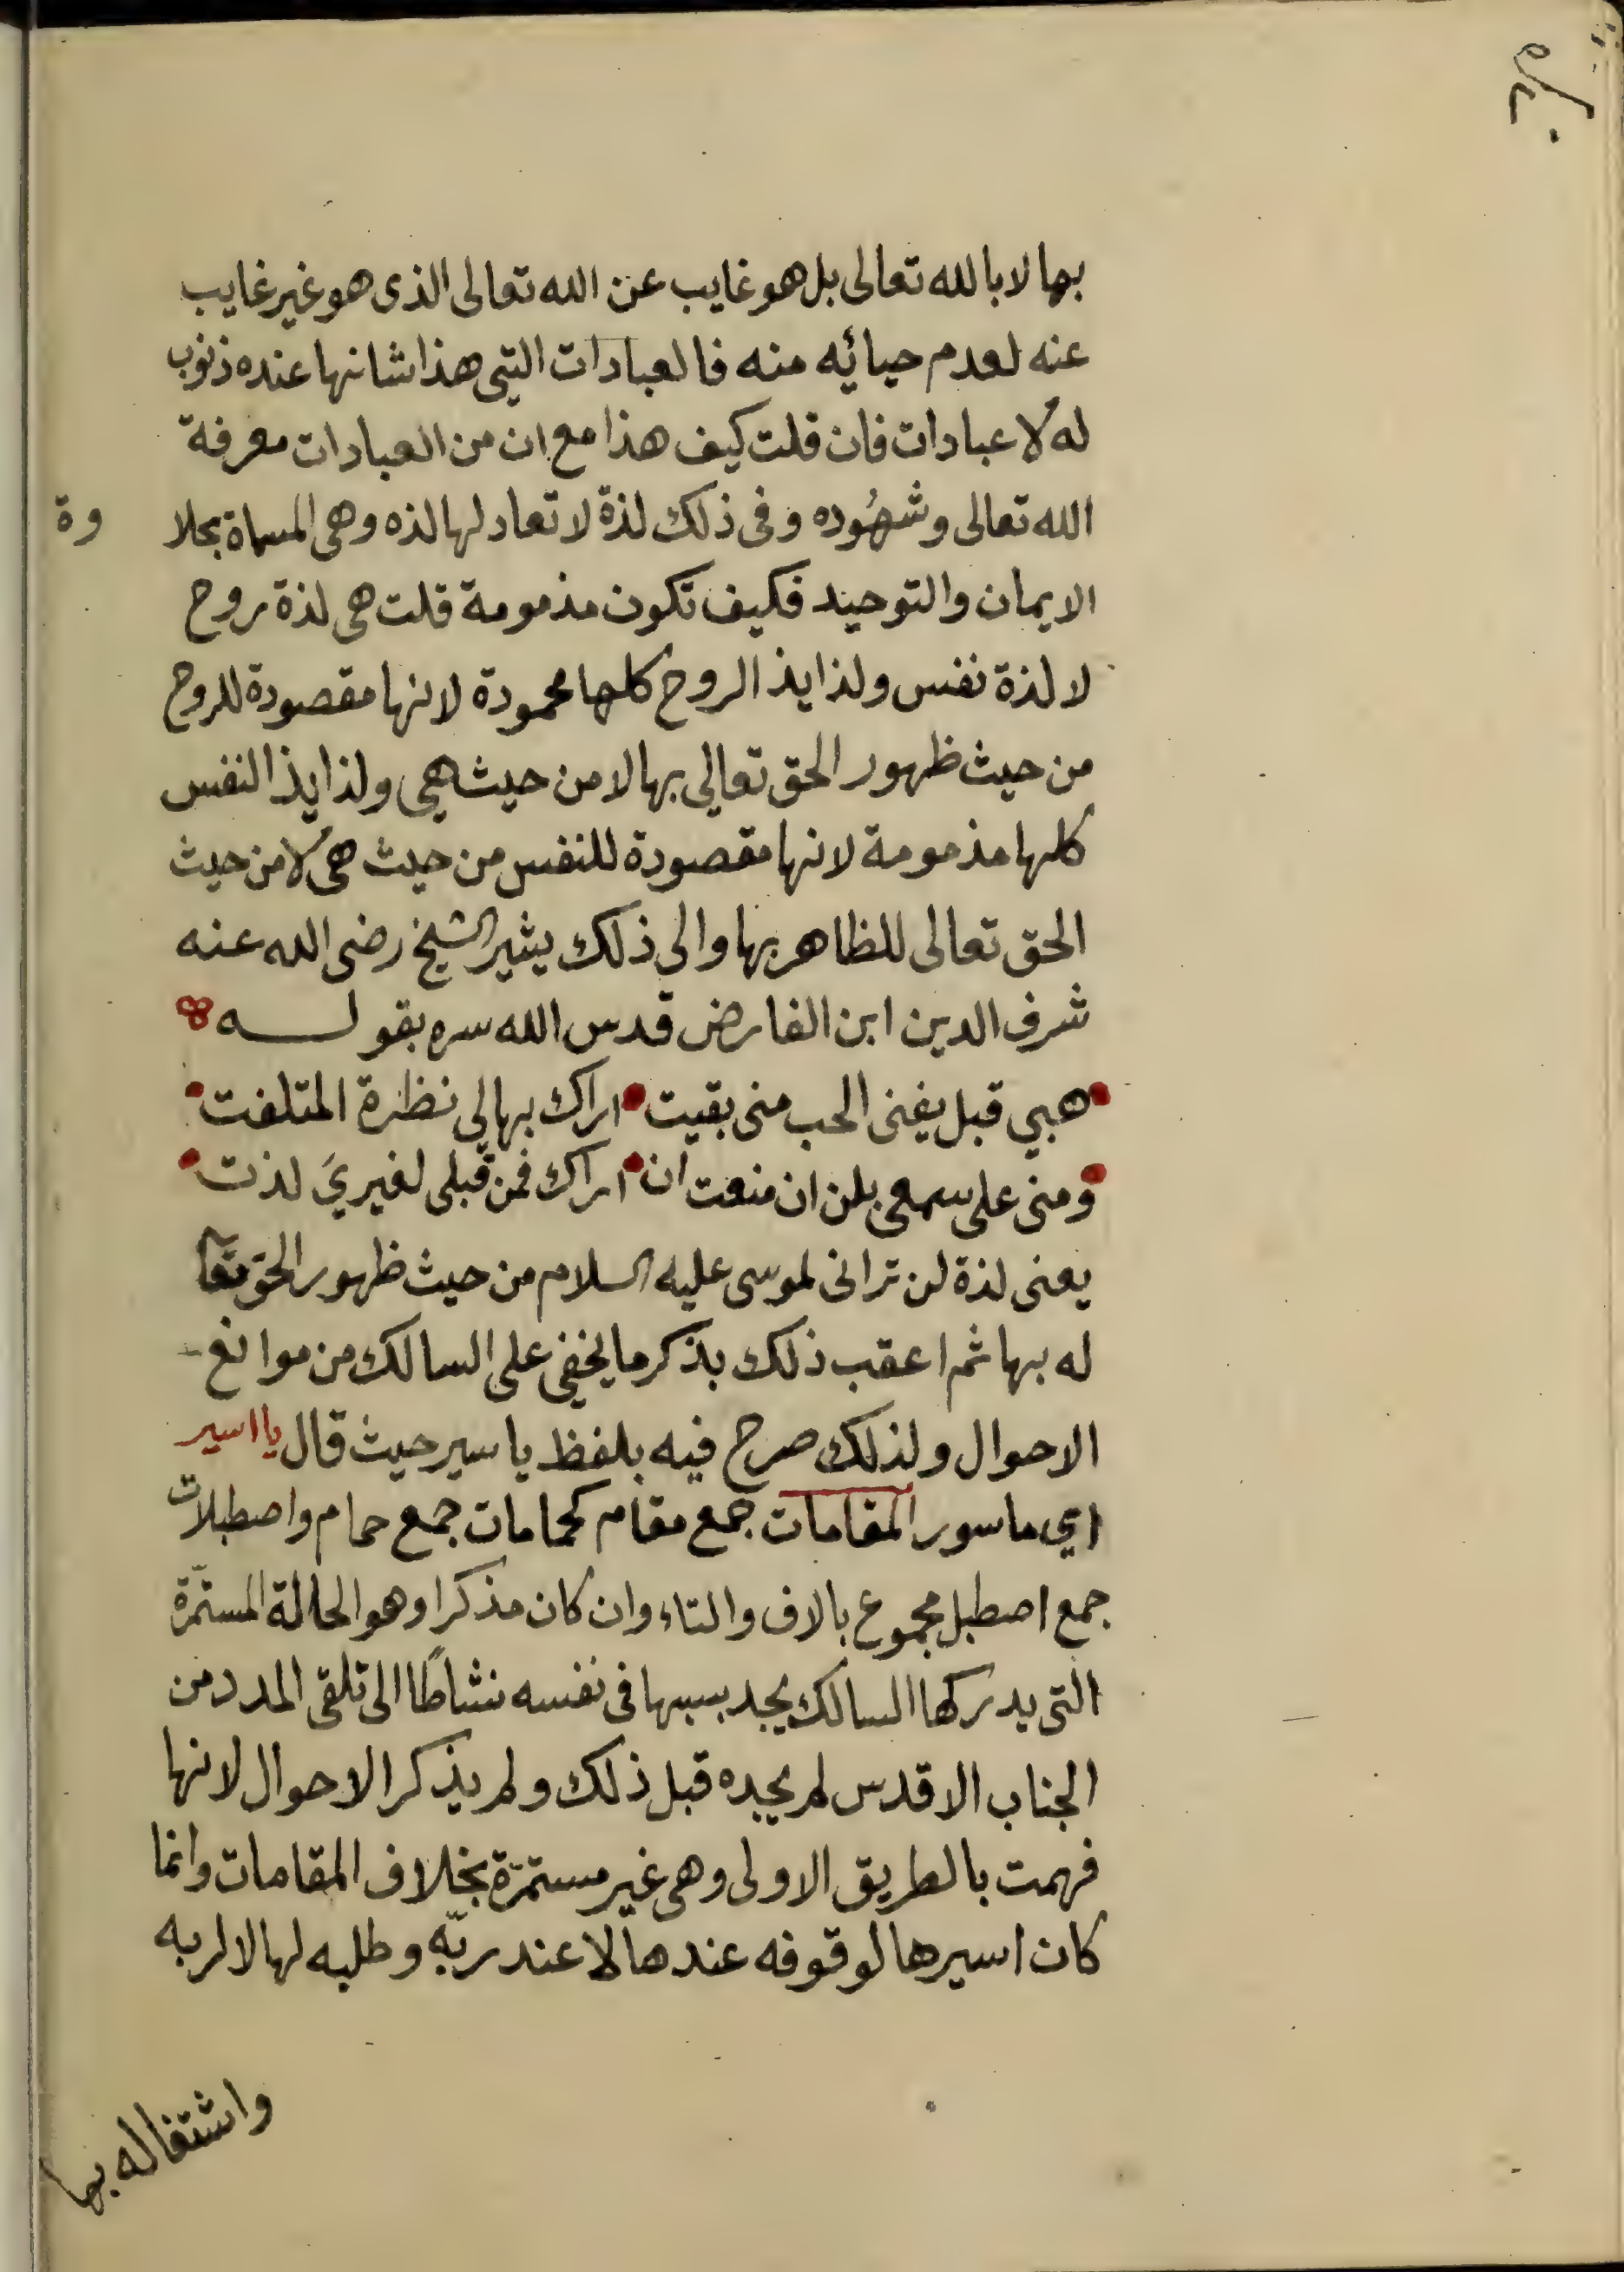 بها لا بالله تعالى بل هو غايب عن الله تعالى الذى هو غير غايب
عنه لعدم حيائه منه فالعبادات التى هذا شانها عنده ذنوب
له لا عبادات فان قلت كيف هذا مع ان من العبادات معرفة
الله تعالى وشهُوده وفى ذلك لذة لا تعادلها لذه وهى المسماة بحلا وة
الايمان والتوحيد فكيف تكون مذمومة قلت هى لذة روح
لا لذة نفس ولذايذ الروح كلها محمودة لانها مقصودة للروح
من حيث ظهور الحق تعالي بها لا من حيث هي ولذايذ النفس
كلها مذمومة لانها مقصودة للنفس من حيث هى لا من حيث
الحق تعالى للظاهر بها والى ذلك يشير الشيخ رضى الله عنه
شرف الدين ابن الفارض قدس الله سره بقولــه
هبي قبل يفنى الحب منى بقيت اراك بها لي نظرة المتلفت
ومنى على سمعى بلن ان منعت ان اراك فمن قبلى لغيريَ لذت
يعنى لذة لن ترانى لموسى عليه السلام من حيث ظهور الحق تعا
له بها ثم اعقب ذلك بذكر ما يخفى على السالك من موانع
الاحوال ولذلك صرح فيه بلفظ ياسير حيث قال يا اسير
اي ماسور المقامات جمع مقام كحمامات جمع حمام واصطبلات
جمع اصطبل مجموع بالاف والتاء وان كان مذكرا وهو الحالة المستمّرة
التى يدركها السالك يجد بسببها فى نفسه نشاطًا الى تلقى المدد من
الجناب الاقدس لم يجده قبل ذلك ولم يذكر الاحوال لانها
فهمت بالطريق الاولى وهى غير مستمرّة بخلاف المقامات وانما
كان اسيرها لوقوفه عندها لا عند ربّه وطلبه لها لا لربه
واشتغاله بها